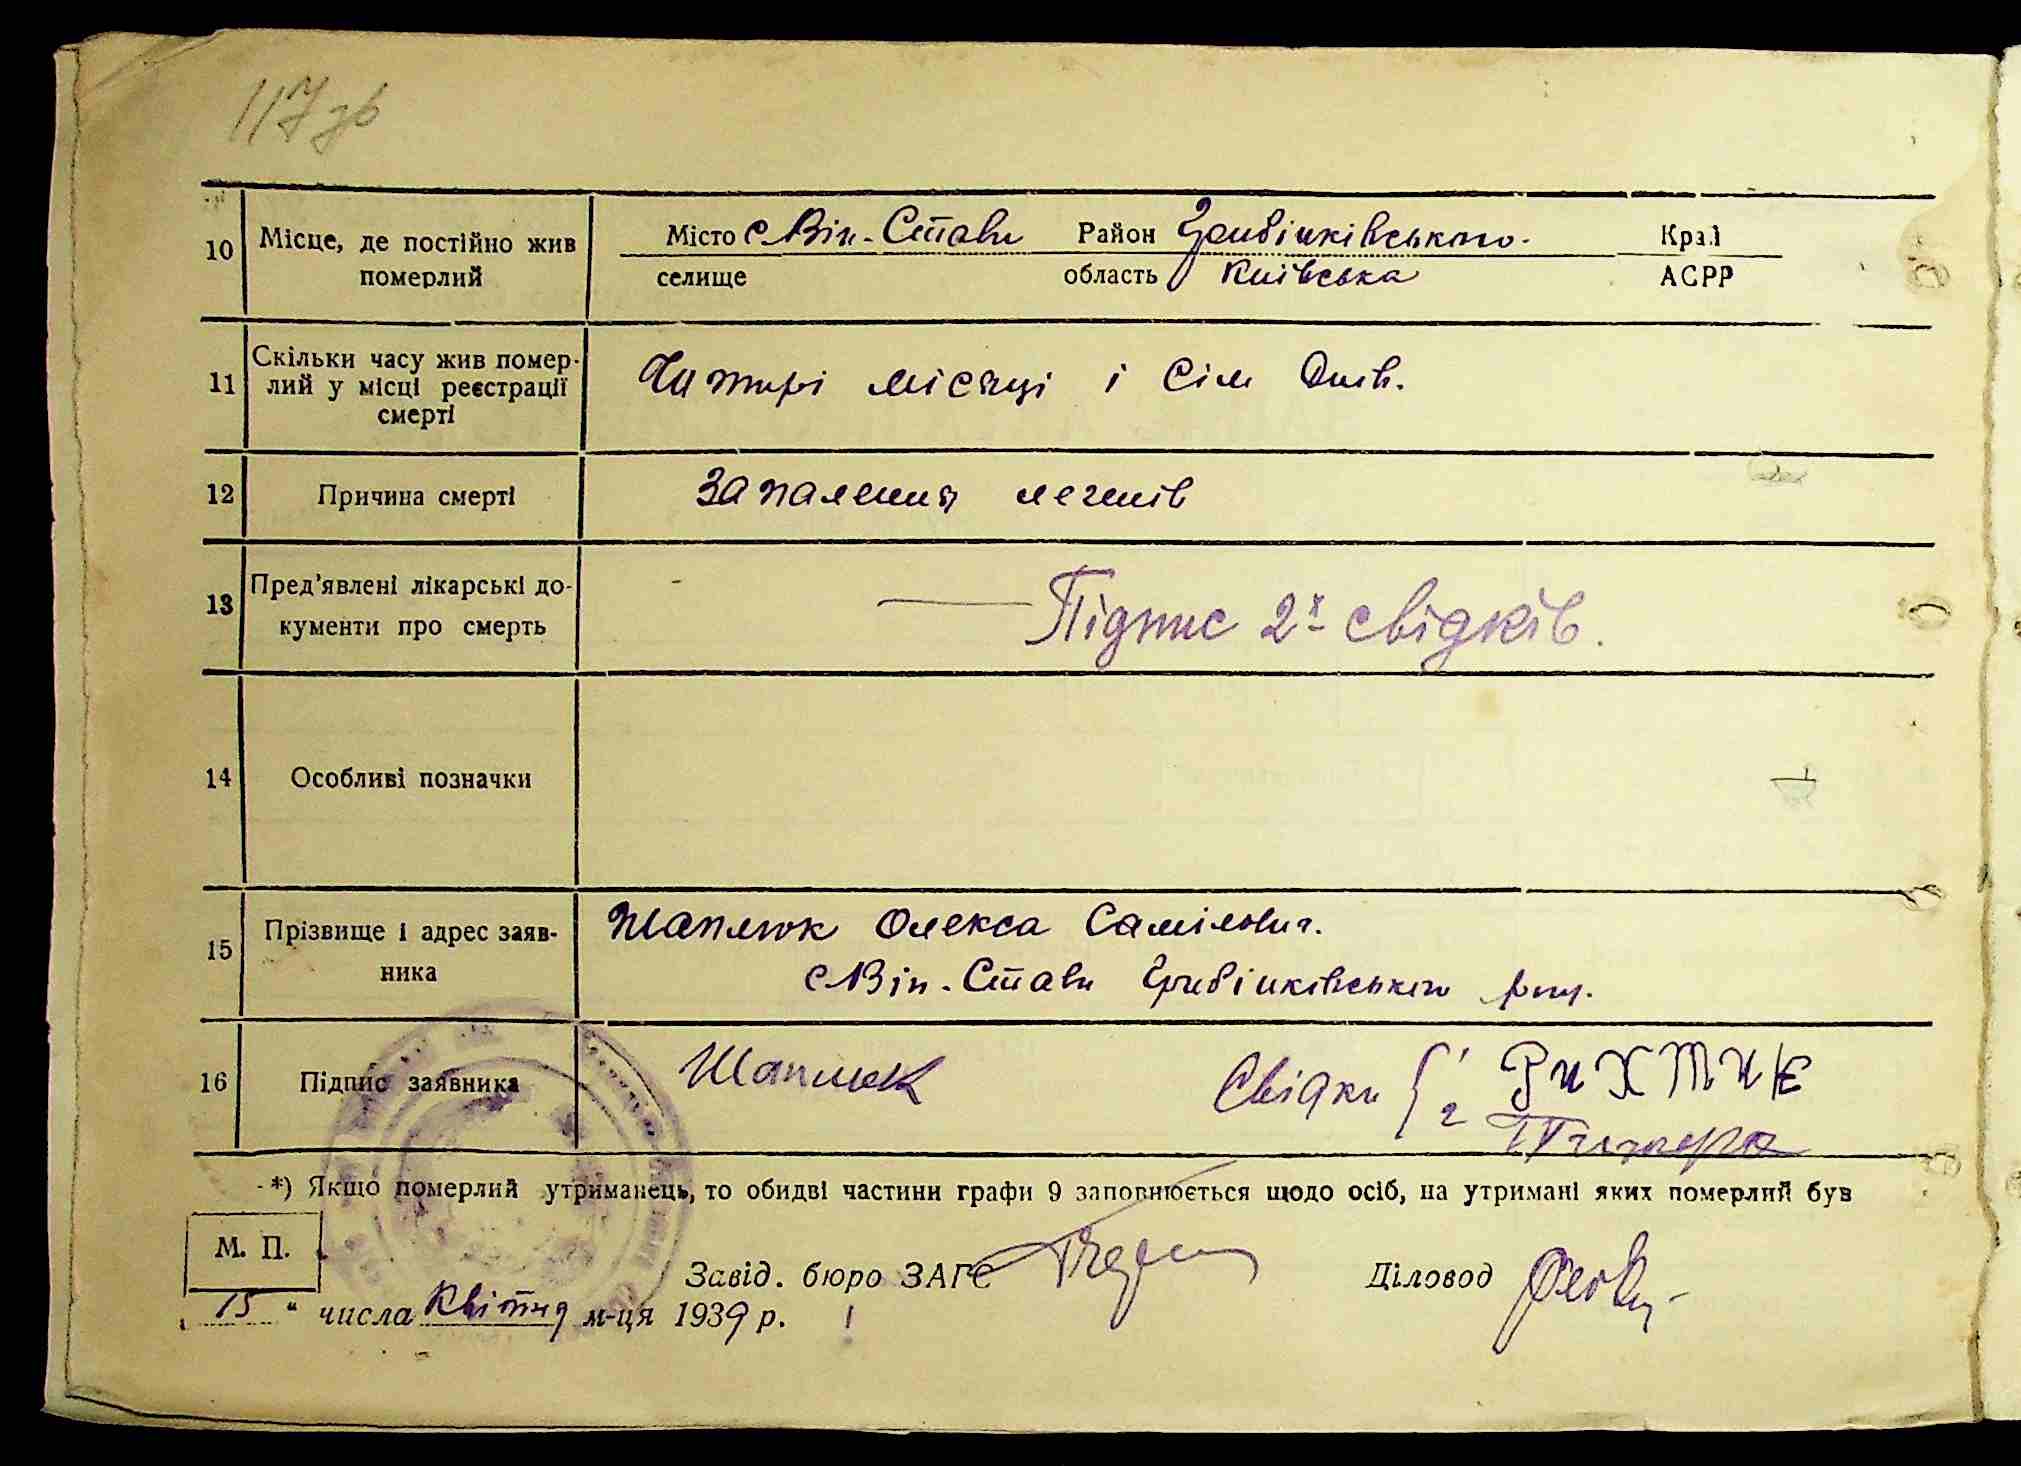 117 зв
10 Місце, де постійно жив померлий
Місто с Він-Стави Район Гребінківського Край
селище область Київська АСРР
11 Скільки часу жив помер-
лий у місці реєстрації
смерті
Чотирі місяці і сім днів.
12 Причина смерті Запалення легенів
13 Пред'явлені лікарські до-
кументи про смерть
Підпис 2х свідків.
14 Особливі позначки
15 Прізвище і адрес заяв-
ника
Шаплюк Олекса Самілович.
с Він-Стави Гребінківського
16 Підпис заявника Шаплюк Свідки 1 РИХТИК
2
*) Якщо померлий утриманець, то обидві частини графи 9 заповнюється щодо осіб, на утримані яких померлий був
М. П.
Завід. бюро ЗАГС Діловод
15 " числа Квітня м-ця 1939 р.